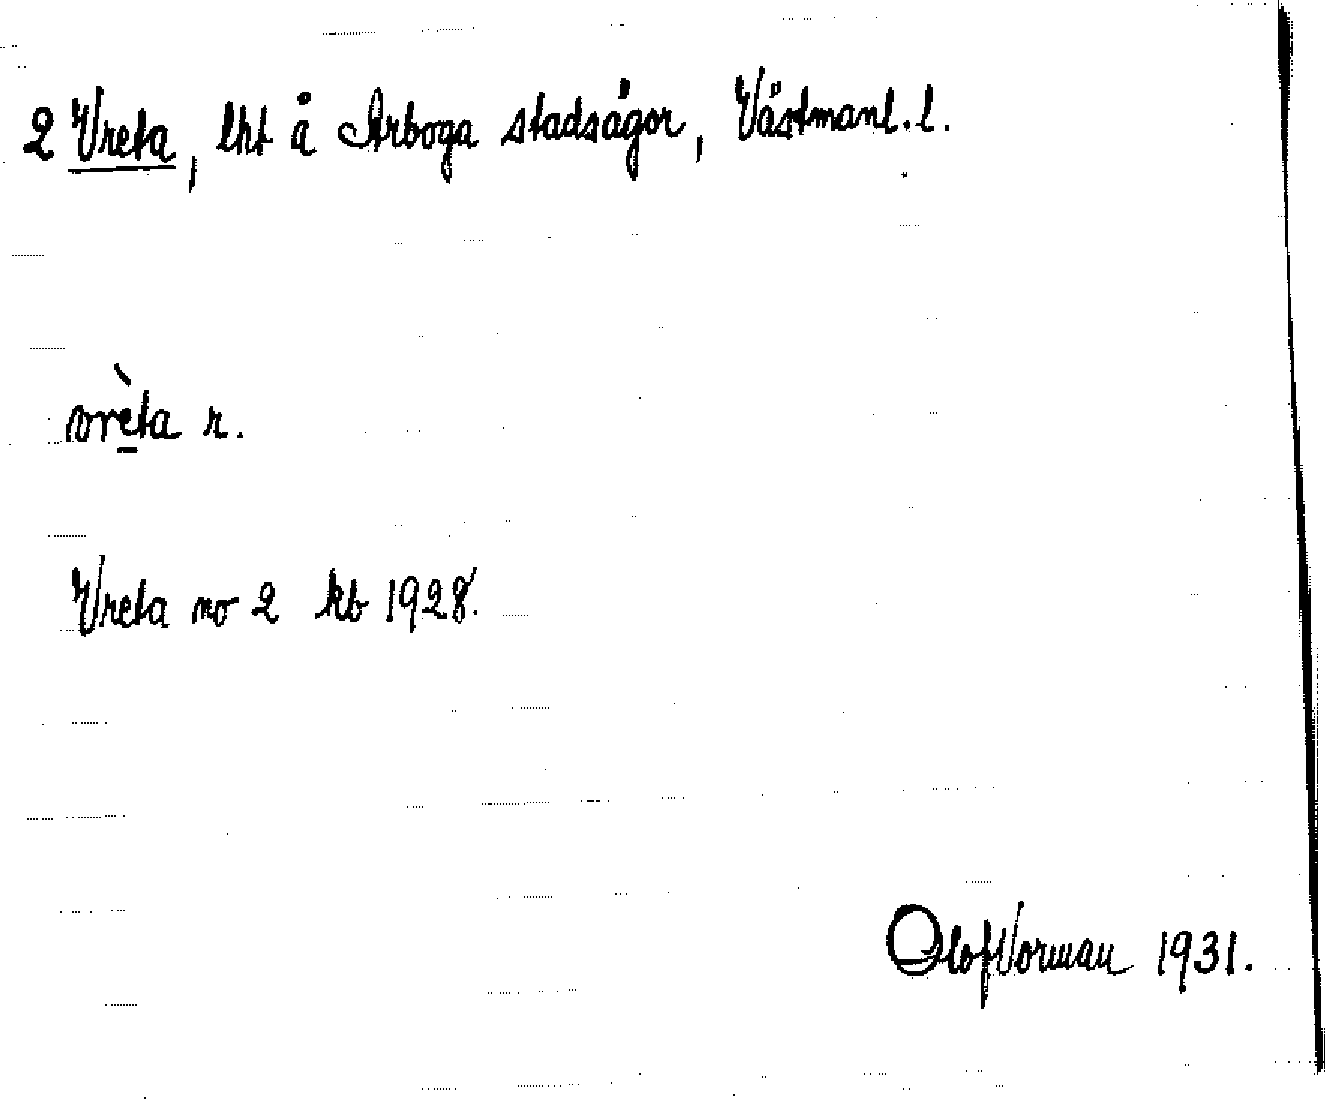 2 Vreta, lht å Arboga stadsägor, Västmanl. l.
vrè̱ta r.
Vreta no 2 kb 1928.
Olof Vorman 1931.